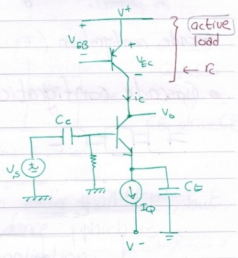 V⁺
active
load
V_EB
V_EC
← r_c
i_c
V_o
C_c
V_s
I_Q
C_E
V⁻